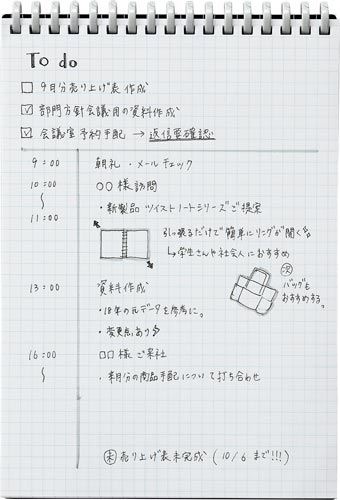 To do
□ 9月分売り上げ表作成
☑ 部門方針会議用の資料作成
☑ 会議室予約手配 → 返信要確認
9:00 朝礼・メールチェック
10:00 ○○様訪問
〜
11:00 ・新製品 ツイストノートシリーズご提案
引っ張るだけで簡単にリングが開く
↳ 学生さんや社会人におすすめ
次 バッグも
おすすめする。
13:00 資料作成
・18年の元データを参考に。
・変更点あり
16:00 □□様ご来社
〜 ・来月分の商品手配について打ち合わせ
未 売り上げ表未完成 (10/6まで!!!)